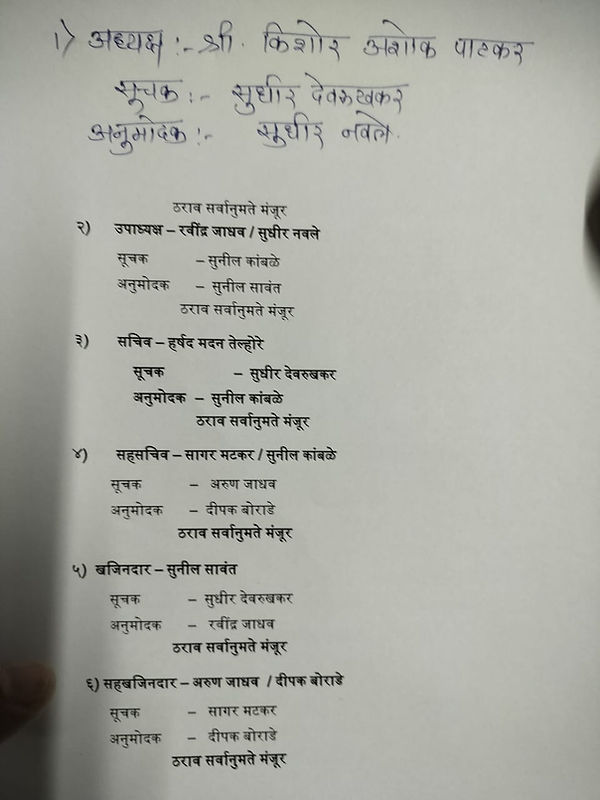 १) अध्यक्ष :- श्री. किशोर अशोक पाटकर
सूचक :- सुधीर देवरुखकर
अनुमोदक :- सुधीर नवले.
ठराव सर्वानुमते मंजूर
२) उपाध्यक्ष – रवींद्र जाधव / सुधीर नवले
सूचक – सुनील कांबळे
अनुमोदक – सुनील सावंत
ठराव सर्वानुमते मंजूर
३) सचिव – हर्षद मदन तेल्होरे
सूचक – सुधीर देवरुखकर
अनुमोदक – सुनील कांबळे
ठराव सर्वानुमते मंजूर
४) सहसचिव – सागर मटकर / सुनील कांबळे
सूचक – अरुण जाधव
अनुमोदक – दीपक बोराडे
ठराव सर्वानुमते मंजूर
५) खजिनदार – सुनील सावंत
सूचक – सुधीर देवरुखकर
अनुमोदक – रवींद्र जाधव
ठराव सर्वानुमते मंजूर
६) सहखजिनदार – अरुण जाधव / दीपक बोराडे
सूचक – सागर मटकर
अनुमोदक – दीपक बोराडे
ठराव सर्वानुमते मंजूर